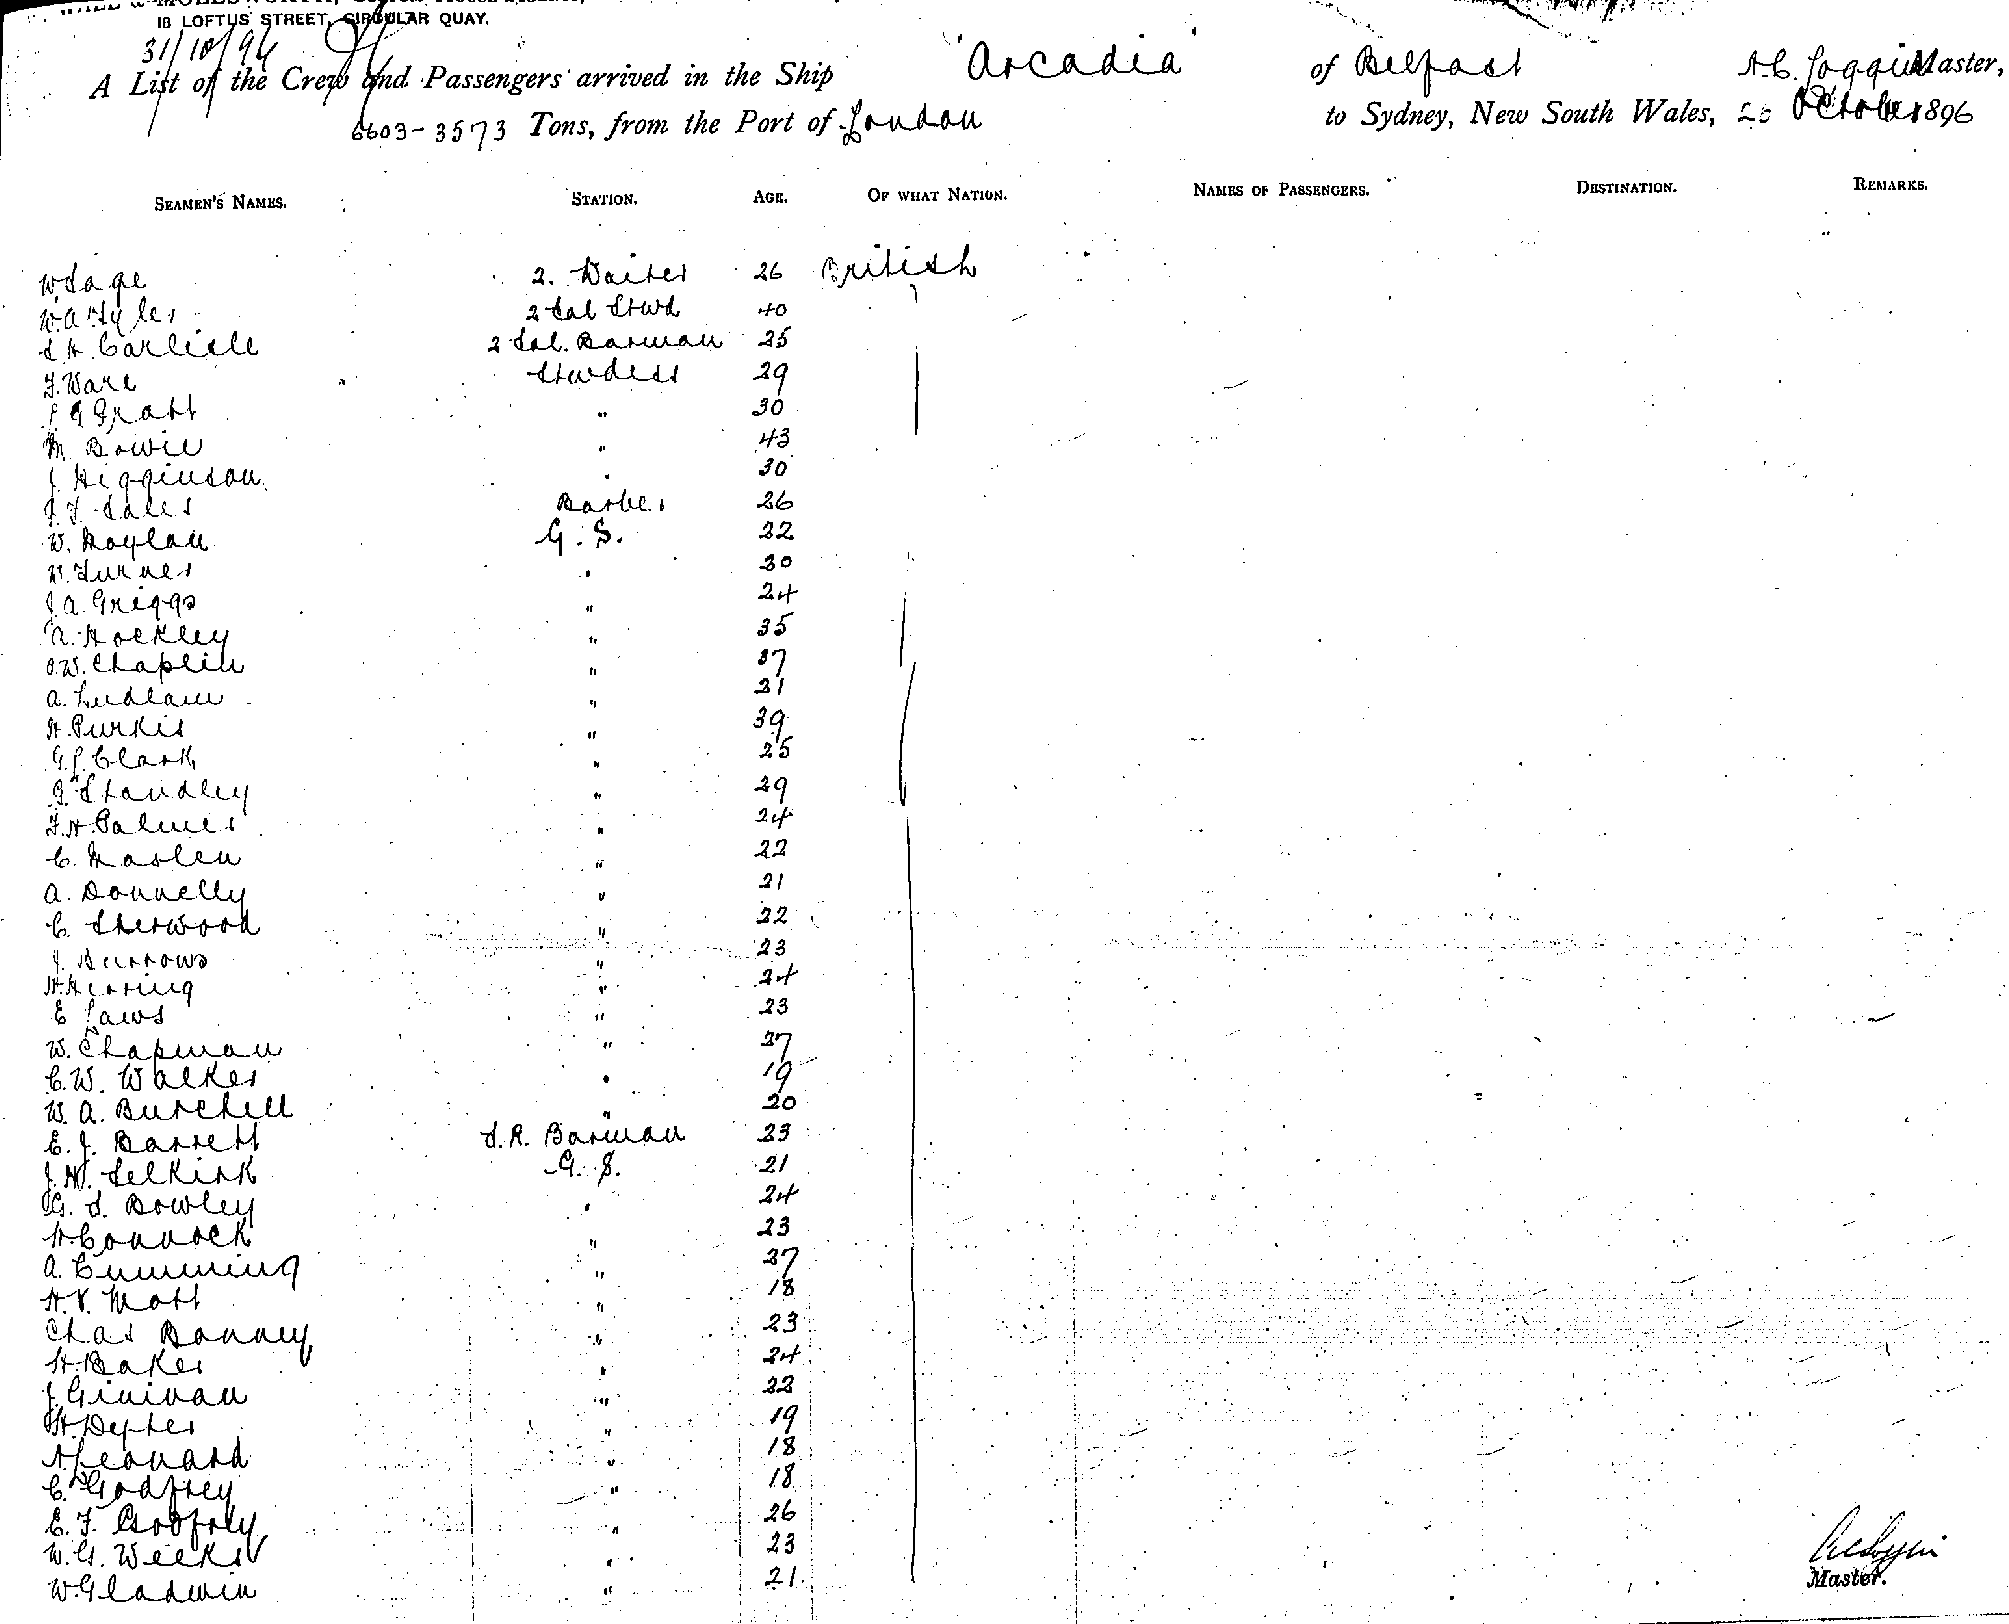 18 LOFTUS STREET, CIRCULAR QUAY.
31/10/96
A List of the Crew and Passengers arrived in the Ship "Arcadia" of Belfast A.C. Loggin Master,
6603-3573 Tons, from the Port of London to Sydney, New South Wales, October 1896
SEAMEN'S NAMES. STATION. AGE. OF WHAT NATION. NAMES OF PASSENGERS. DESTINATION. REMARKS.
W Sage 2. Waiter 26 British
W.A. Hyles 2 Sal Stwd 40
S H. Carlisle 2 Sal. Barman 25
F. Ware Stwdess 29
G Gratt " 30
M Bowie " 43
J. Higginson " 30
J. F. Sales Barber 26
W. Boylan G. S. 22
W. Turner " 30
J. A. Griggs " 24
A. Hockley " 35
O.W. Chaplin " 37
A. Ludlam " 21
H. Purkis " 39
G.J. Clark " 25
G. Standley " 29
F. H. Palmer " 24
C. Haslen " 22
A. Donnelly " 21
C. Sherwood " 22
J. Burrows " 23
H. Herring " 24
E Laws " 23
W. Chapman " 27
C. W. Walker " 19
W. A. Burchell " 20
E. J. Barrett S. R. Barman 23
J. W. Selkirk G. S. 21
G. S. Bowley " 24
H Connock " 23
A. Cumming " 27
H. V. Mott " 18
Chas Bonney " 23
H. Baker " 24
J. Ginivan " 22
H. Depter " 19
A Leonard " 18
C. Godfrey " 18
E. F. Godfrey " 26
W. G. Weeks " 23
W. Gladwin " 21
AC Loggin
Master.